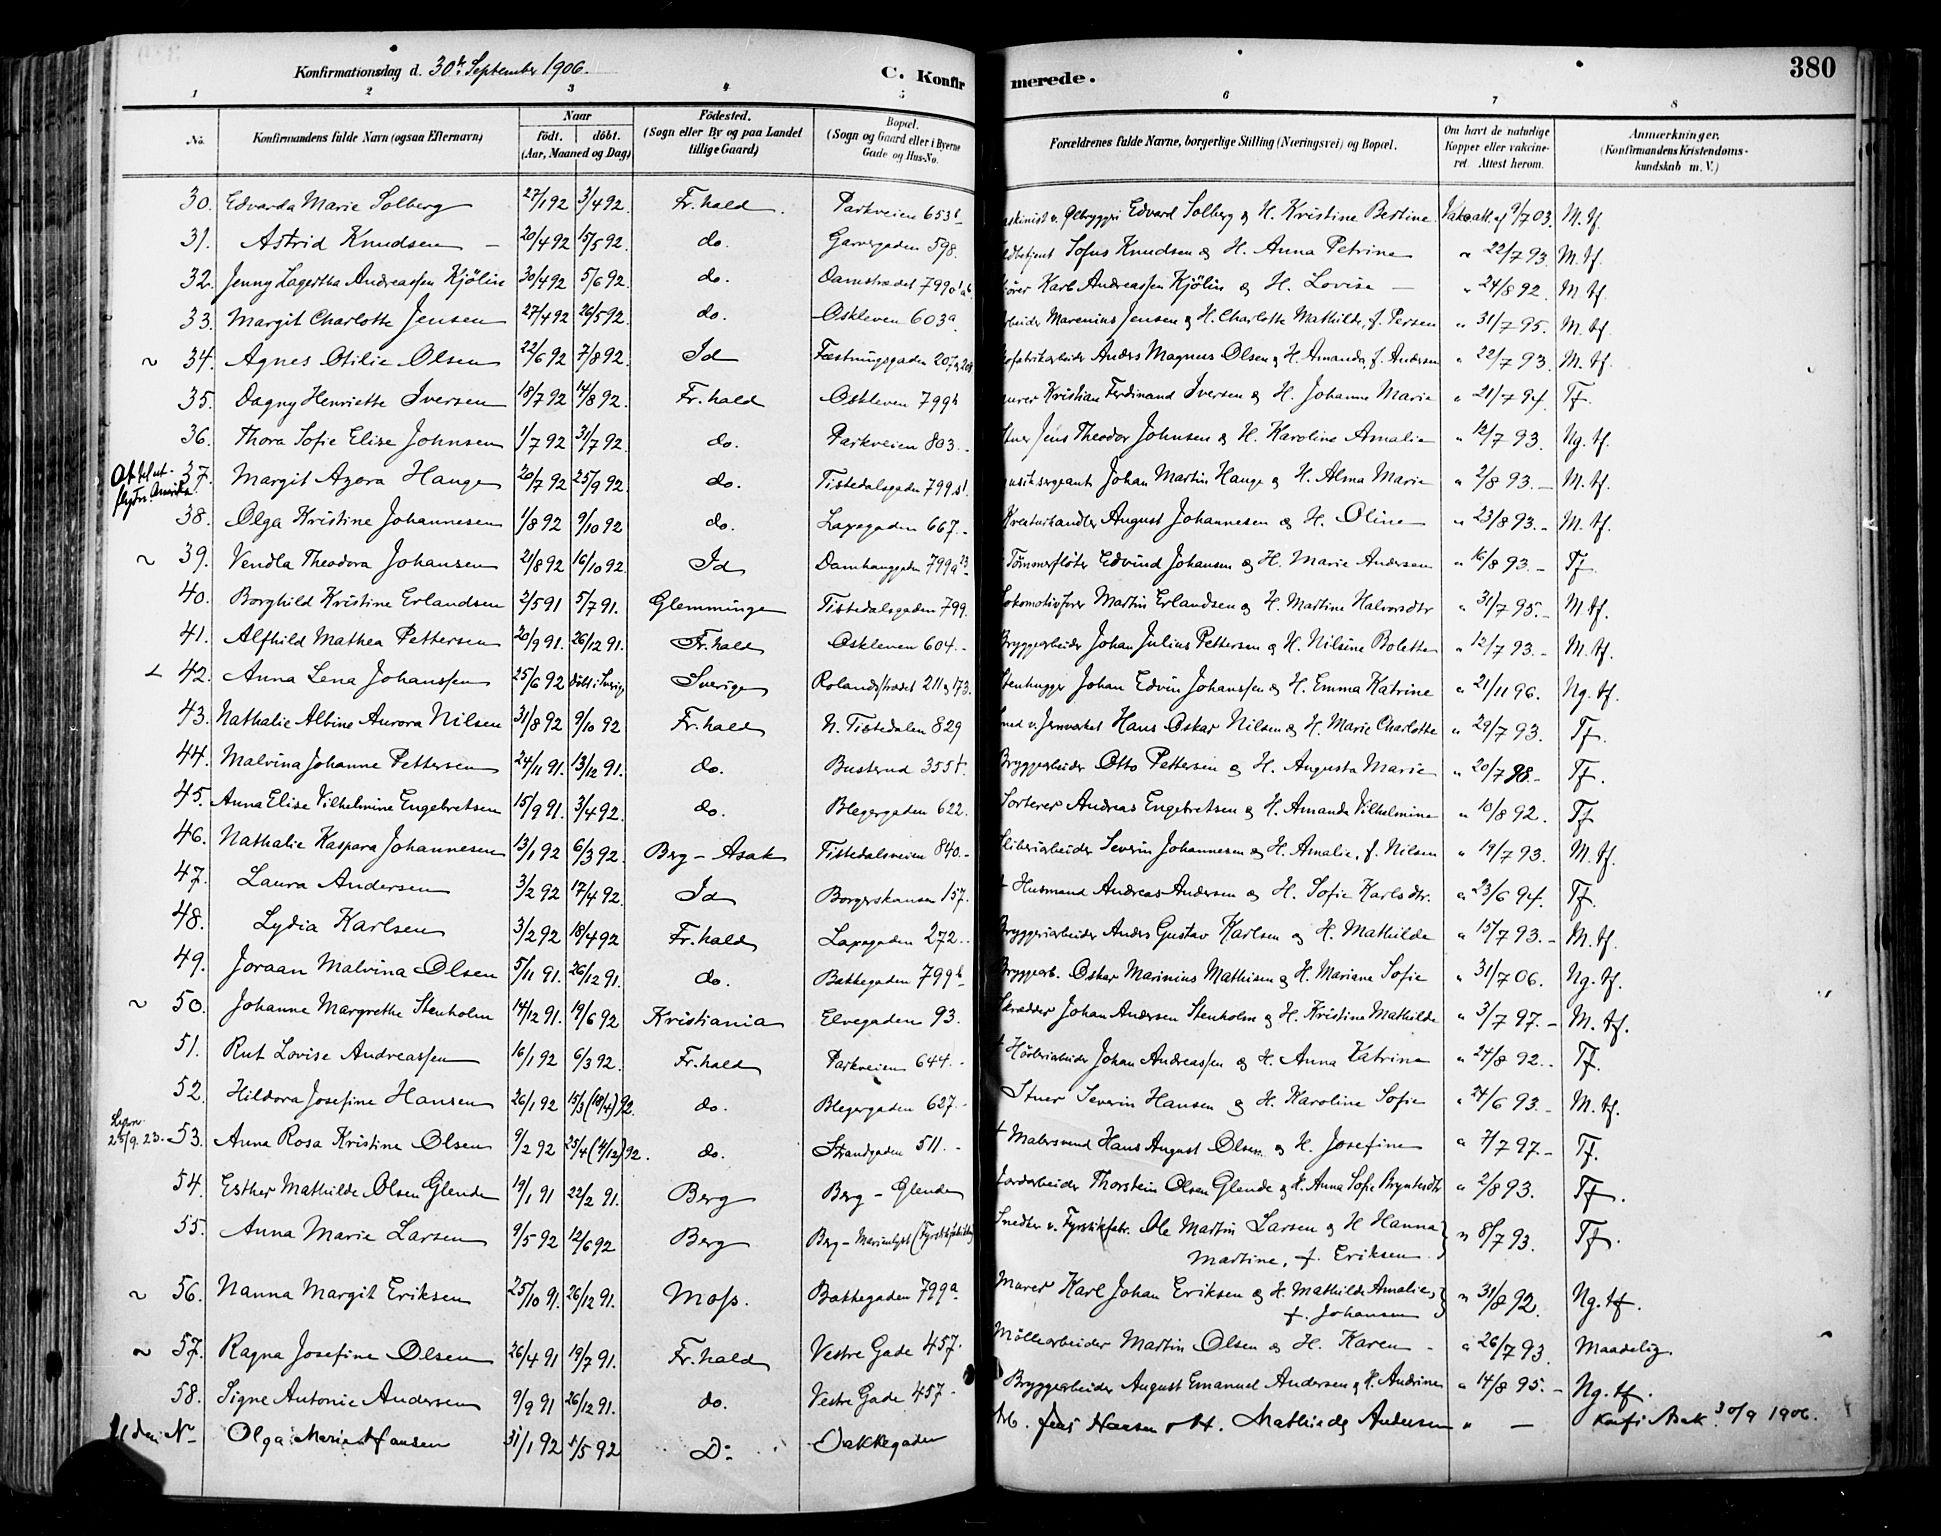 Konfirmationsdag d. 30te September 1906. C. Konfirmerede. 380
1 2 3 4 5 6 7 8
No. Konfirmandens fulde Navn (ogsaa Efternavn) Naar födt. döbt. (Aar, Maaned og Dag) Födested. (Sogn eller By og paa Landet tillige Gaard) Bopæl. (Sogn og Gaard eller i Byerne Gade og Hus-No. Forældrenes fulde Navne, borgerlige Stilling (Næringsvei) og Bopæl. Om havt de naturlige Kopper eller vakcineret. Attest herom. Anmærkninger. (Konfirmandens Kristendomskundskab m. V.)
30. Edvarda Marie Solberg 27/1 92 3/4 92. Fr.hald. Parkveien 653 Ølbryggri Edvard Solberg & H. Kristine Bertine 9/7 03. M. tf.
31. Astrid Knudsen 20/4 92 15/5 92. do. Garvergaden 598. Sofus Knudsen & H. Anna Petrine " 22/7 93. M. tf.
32. Jenny Lagertha Andreassen Kjölin 30/4 92 5/6 92. do. Damstrædet 799 Karl Andreassen Kjölin & H. Lovise " 24/8 92. M. tf.
33. Margit Charlotte Jensen 27/4 92 26/5 92. do. Oskleven 603a. Marenius Jensen & H. Charlotte Mathilde, f. Persen " 31/7 95. M. tf.
~ 34. Agnes Otilie Olsen 22/6 92 7/8 92. Id Fæstningsgaden 207 & 208 Anders Magnus Olsen & H. Amanda, f. Andersen " 22/7 93. M. tf.
35. Dagny Henriette Iversen 18/7 92 14/8 92. Fr.hald Oskleven 799h Kristian Ferdinand Iversen & H. Johanne Marie " 21/7 94. Tf.
36. Thora Sofie Elise Johnsen 1/7 92 31/7 92. do. Parkveien 803. Jens Theodor Johnsen & H. Karoline Amalie " 12/7 93. Ng. tf.
37. Margit Azora Hauge 20/7 92 25/9 92. do. Tistedalsgaden 799 Johan Martin Hauge & H. Alma Marie " 2/8 93. M. tf.
38. Olga Kristine Johannesen 1/8 92 9/10 92 do. Laxegaden 667. Kreaturhandler August Johannesen & H. Oline " 23/8 93. M. tf.
~ 39. Vendla Theodora Johansen 21/8 92 16/10 92. Id Damhauggaden 799 Tömmerfløter Edvind Johansen & H. Marie Andersen " 16/8 93. Tf.
40. Borghild Kristine Erlandsen 2/5 91 5/7 91. Glemminge Tistedalsgaden 799. Lokomotivfører Martin Erlandsen & H. Martine Halvorsdtr " 31/7 95. M. tf.
41. Alfhild Mathea Pettersen 20/9 91. 26/12 91. Fr.hald Oskleven 604. Bryggearbeider Johan Julius Pettersen & H. Nilsine Bolette " 12/7 93. M. tf.
42. Anna Lena Johanssen 25/6 92 döbt i Sverige Sverige Rolandstrædet 211 & 173. Stenhugger Johan Edvin Johanssen & H. Emma Katrine " 21/11 96. Ng. tf.
43. Nathalie Albine Aurora Nilsen 31/8 92 9/10 92 Fr.hald N. Tistedalen 829 Smed v. Jernværket Hans Oskar Nilsen & H. Marie Charlotte " 29/7 93. Tf.
44. Malvina Johanne Pettersen 24/11 91. 13/12 91. do. Busterud 355t. Bryggearbeider Otto Pettersen & H. Augusta Marie " 20/7 98. Tf.
45. Anna Elise Vilhelmine Engebretsen 15/9 91. 3/4 92. do. Blegergaden 622. Sorterer Andreas Engebretsen & H. Amanda Vilhelmine " 10/8 92. Tf
46. Nathalie Kaspara Johannesen 13/1 92 6/3 92. Berg - Asak Tistedalsveien 840. Sliberiarbeider Severin Johannesen & H. Amalie, f. Nilsen " 19/7 93. M. tf.
47. Laura Andersen 3/2 92 17/4 92. Id Borgerskansen 157. † Husmand Andreas Andersen & H. Sofie Karlsdtr. " 23/6 94. Tf.
48. Lydia Karlsen 3/2 92 18/4 92 Fr.hald Laxegaden 272. Bryggeriarbeider Anders Gustav Karlsen & H. Mathilde " 15/7 93. M. tf.
49. Joraan Malvina Olsen 5/11 91. 26/12 91. do. Bakkegaden 799h Bryggearb. Oskar Marinius Mathisen & H. Mariane Sofie " 31/7 06. Ng. tf.
~ 50. Johanne Margrethe Stenholm 14/12 91. 19/6 92 Kristiania Elvegaden 93. Skrædder Johan Andersen Stenholm & H. Kristine Mathilde " 3/7 97. M. tf.
51. Rut Lovise Andreassen 16/1 92 6/3 92. Fr.hald Parkveien 644. † Johan Andreassen & H. Anna Katrine " 24/8 92. Tf.
52. Hildora Josefine Hansen 26/1 92 15/3 (18/4) 92. do. Blegergaden 627. Stuer Severin Hansen & H. Karoline Sofie " 24/6 93. M. tf.
25/9. 23. 53. Anna Rosa Kristine Olsen 9/2 92 25/4 (4/12) 92. do. Strandgaden 511. † Malersvend Hans August Olsen & H. Josefine " 7/7 97. Tf.
54. Esther Mathilde Olsen Glende 19/1 91 22/2 91. Berg Berg - Glende Jordarbeider Thorstein Olsen Glende & H. Anna Sofie Bryntesdtr " 2/8 93. Tf.
55. Anna Marie Larsen 9/5 92 12/6 92 Berg Berg - Marienlyst Snedker v. Fyrstikfabr. Ole Martin Larsen & H Hanna Martine, f. Eriksen " 8/7 93. Tf.
~ 56. Nanna Margit Eriksen 25/10 91. 26/12 91. Moss. Bakkegaden 799a. Murer Karl Johan Eriksen & H. Mathilde Amalie, f. Johansen " 31/8 92. Ng. tf.
~ 57. Ragna Josefine Olsen 26/4 91 19/7 91. Fr.hald Vestre Gade 457. Möllearbeider Martin Olsen & H. Karen " 26/7 93. Maadelig
58. Signe Antonie Andersen 9/9 91 26/12 91. do. Vestre Gade 457 Bryggearbeider August Emanuel Andersen & H. Andrine " 14/8 95. Ng. tf.
Uden No Olga Marie Hansen 31/1 92 1/5 92 Do Bakkegaden Arb. Jens Hansen & H. Mathilde Andersen " — Konf. i Asak 30/9 1906.